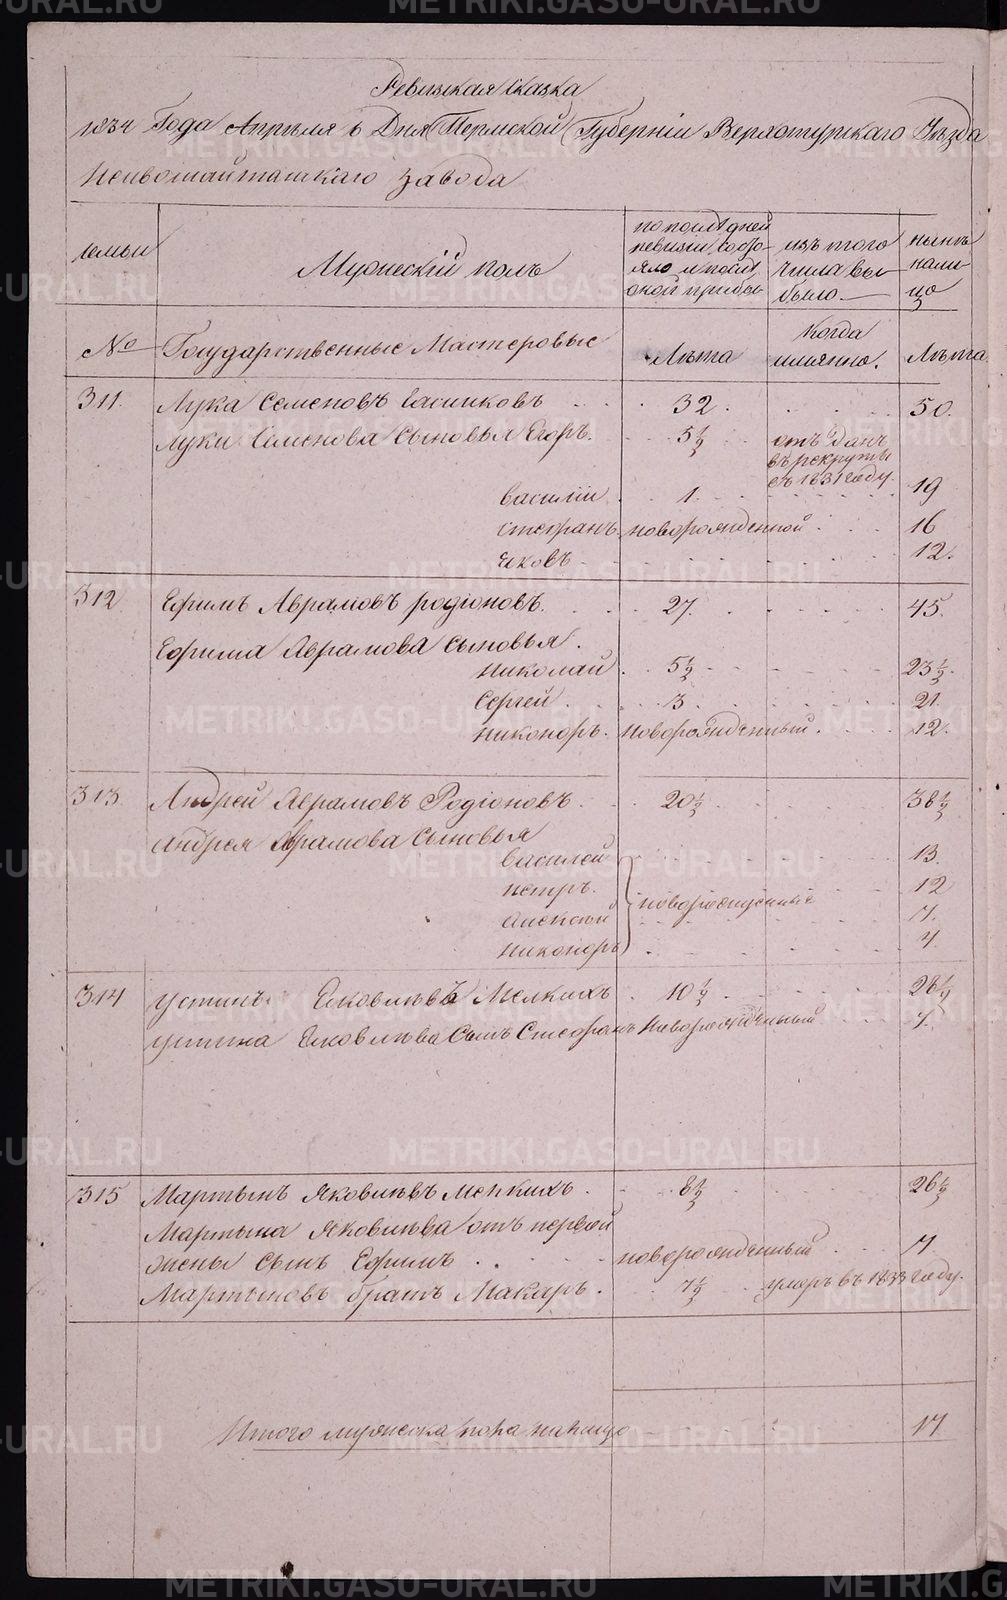 Ревизская сказка
1834 Года Апреля 6 Дня Пермской Губерніи Верхотурскаго Уезда
Невьошайтанскаго завода
семьи
Мужескій полъ
по последней ревизіи состояло и после оной прибыло
изъ того числа выбыло
ныне налицо
№
Государственные Мастеровые
Лета
когда имянно.
Лета
311. Лука Семеновъ 32. 50.
Луки Семенова Сыновья Егоръ. 5½ отъ данъ въ рекруты въ 1831 году.
Василіи 1. 19
Стефанъ новорожденной 16
Яковъ 12.
312 Ефимъ Аврамовъ родіоновъ. 27. 45.
Ефима Аврамова Сыновья.
Николай 5½ 23½.
Сергей 3. 21.
Никоноръ. Новорожденный. 12.
313 Андрей Аврамовъ Родіоновъ. 20½ 38½
Андрея Аврамова Сыновья
Василей 13.
Петръ. новорожденные 12
Алексей 7.
Никоноръ 4
314 Устинъ Яковлевъ Мелкихъ 10½ 28½
Устина Яковлева Сынъ Стефанъ Новорожденный 4.
315 Мартынъ Яковлевъ Мелкихъ. 8½ 26½
Мартына Яковлева отъ первой
жены сынъ Ефимъ новорожденный 7.
Мартыновъ братъ Макаръ. 7½ умеръ въ 1833 году.
Итого мужеска пола налицо 17
METRIKI.GASO-URAL.RU